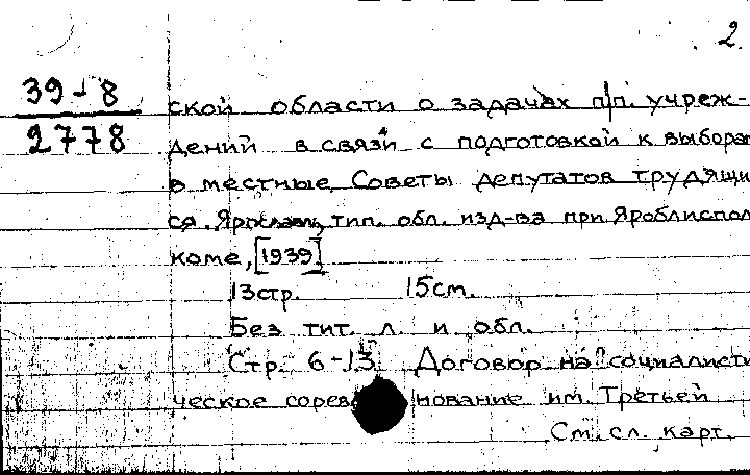 2.
39-8
2778
ской области о задачах п/п. учреж-
дений в связи с подготовкой к выборам
в местные Советы депутатов трудящи
ся. Ярославль, тип. обл. изд-ва при Яроблиспол
коме, [1939].
13стр. 15см.
Без тит. л. и обл.
Стр. 6-13. Договор на социалисти
ческое соревнование им. Третьей
См. сл. карт.